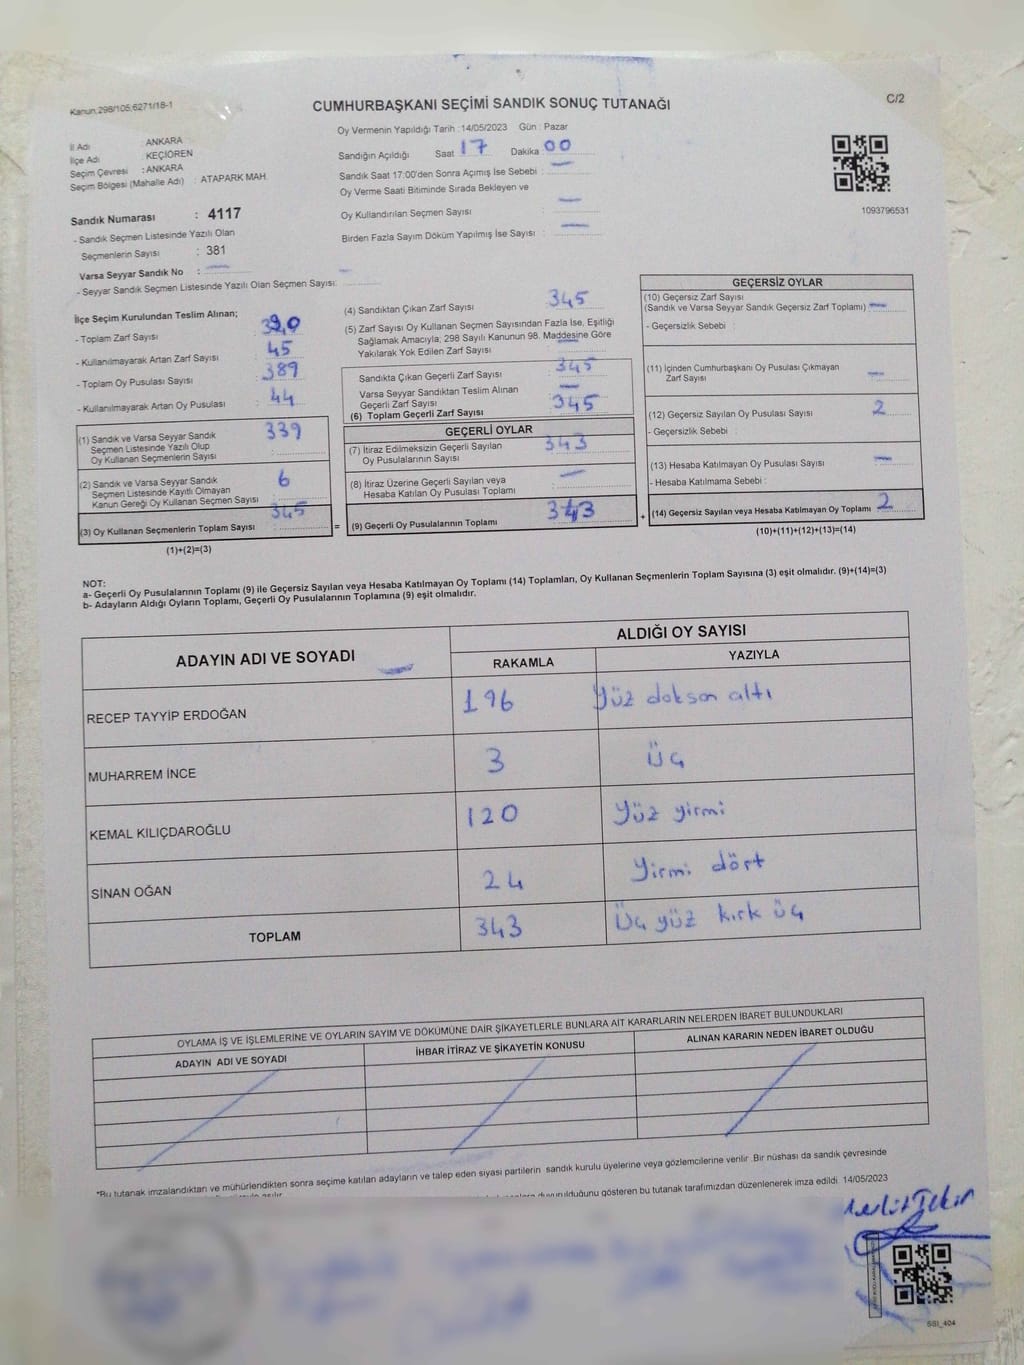 Kanun.298/105;6271/18-1
CUMHURBAŞKANI SEÇİMİ SANDIK SONUÇ TUTANAĞI
C/2
Oy Vermenin Yapıldığı Tarih :14/05/2023 Gün : Pazar
İl Adı : ANKARA
İlçe Adı : KEÇİÖREN
Seçim Çevresi : ANKARA
Seçim Bölgesi (Mahalle Adı) : ATAPARK MAH.
Sandığın Açıldığı Saat 17 Dakika 00
Sandık Saat 17:00'den Sonra Açımış İse Sebebi : —
Oy Verme Saati Bitiminde Sırada Bekleyen ve
Oy Kullandırılan Seçmen Sayısı : —
Birden Fazla Sayım Döküm Yapılmış İse Sayısı : —
1093796531
Sandık Numarası : 4117
- Sandık Seçmen Listesinde Yazılı Olan
Seçmenlerin Sayısı : 381
Varsa Seyyar Sandık No : —
- Seyyar Sandık Seçmen Listesinde Yazılı Olan Seçmen Sayısı: —
İlçe Seçim Kurulundan Teslim Alınan;
- Toplam Zarf Sayısı : 390
- Kullanılmayarak Artan Zarf Sayısı : 45
- Toplam Oy Pusulası Sayısı : 389
- Kullanılmayarak Artan Oy Pusulası : 44
(1) Sandık ve Varsa Seyyar Sandık
Seçmen Listesinde Yazılı Olup
Oy Kullanan Seçmenlerin Sayısı : 339
(2) Sandık ve Varsa Seyyar Sandık
Seçmen Listesinde Kayıtlı Olmayan
Kanun Gereği Oy Kullanan Seçmen Sayısı : 6
(3) Oy Kullanan Seçmenlerin Toplam Sayısı : 345
(1)+(2)=(3)
(4) Sandıktan Çıkan Zarf Sayısı : 345
(5) Zarf Sayısı Oy Kullanan Seçmen Sayısından Fazla İse, Eşitliği
Sağlamak Amacıyla; 298 Sayılı Kanunun 98. Maddesine Göre
Yakılarak Yok Edilen Zarf Sayısı : —
Sandıkta Çıkan Geçerli Zarf Sayısı : 345
Varsa Seyyar Sandıktan Teslim Alınan
Geçerli Zarf Sayısı : —
(6) Toplam Geçerli Zarf Sayısı : 345
GEÇERLİ OYLAR
(7) İtiraz Edilmeksizin Geçerli Sayılan
Oy Pusulalarının Sayısı : 343
(8) İtiraz Üzerine Geçerli Sayılan veya
Hesaba Katılan Oy Pusulası Toplamı : —
= (9) Geçerli Oy Pusulalarının Toplamı : 343
GEÇERSİZ OYLAR
(10) Geçersiz Zarf Sayısı
(Sandık ve Varsa Seyyar Sandık Geçersiz Zarf Toplamı) —
- Geçersizlik Sebebi :
(11) İçinden Cumhurbaşkanı Oy Pusulası Çıkmayan
Zarf Sayısı : —
(12) Geçersiz Sayılan Oy Pusulası Sayısı : 2
- Geçersizlik Sebebi :
(13) Hesaba Katılmayan Oy Pusulası Sayısı : —
- Hesaba Katılmama Sebebi :
+ (14) Geçersiz Sayılan veya Hesaba Katılmayan Oy Toplamı 2
(10)+(11)+(12)+(13)=(14)
NOT:
a- Geçerli Oy Pusulalarının Toplamı (9) ile Geçersiz Sayılan veya Hesaba Katılmayan Oy Toplamı (14) Toplamları, Oy Kullanan Seçmenlerin Toplam Sayısına (3) eşit olmalıdır. (9)+(14)=(3)
b- Adayların Aldığı Oyların Toplamı, Geçerli Oy Pusulalarının Toplamına (9) eşit olmalıdır.
ADAYIN ADI VE SOYADI
ALDIĞI OY SAYISI
RAKAMLA YAZIYLA
RECEP TAYYİP ERDOĞAN 196 Yüz doksan altı
MUHARREM İNCE 3 Üç
KEMAL KILIÇDAROĞLU 120 Yüz yirmi
SİNAN OĞAN 24 Yirmi dört
TOPLAM 343 Üç yüz kırk üç
OYLAMA İŞ VE İŞLEMLERİNE VE OYLARIN SAYIM VE DÖKÜMÜNE DAİR ŞİKAYETLERLE BUNLARA AİT KARARLARIN NELERDEN İBARET BULUNDUKLARI
ADAYIN ADI VE SOYADI İHBAR İTİRAZ VE ŞİKAYETİN KONUSU ALINAN KARARIN NEDEN İBARET OLDUĞU
*Bu tutanak imzalandıktan ve mühürlendikten sonra seçime katılan adayların ve talep eden siyasi partilerin sandık kurulu üyelerine veya gözlemcilerine verilir .Bir nüshası da sandık çevresinde
duyurulduğunu gösteren bu tutanak tarafımızdan düzenlenerek imza edildi. 14/05/2023
SSI_404